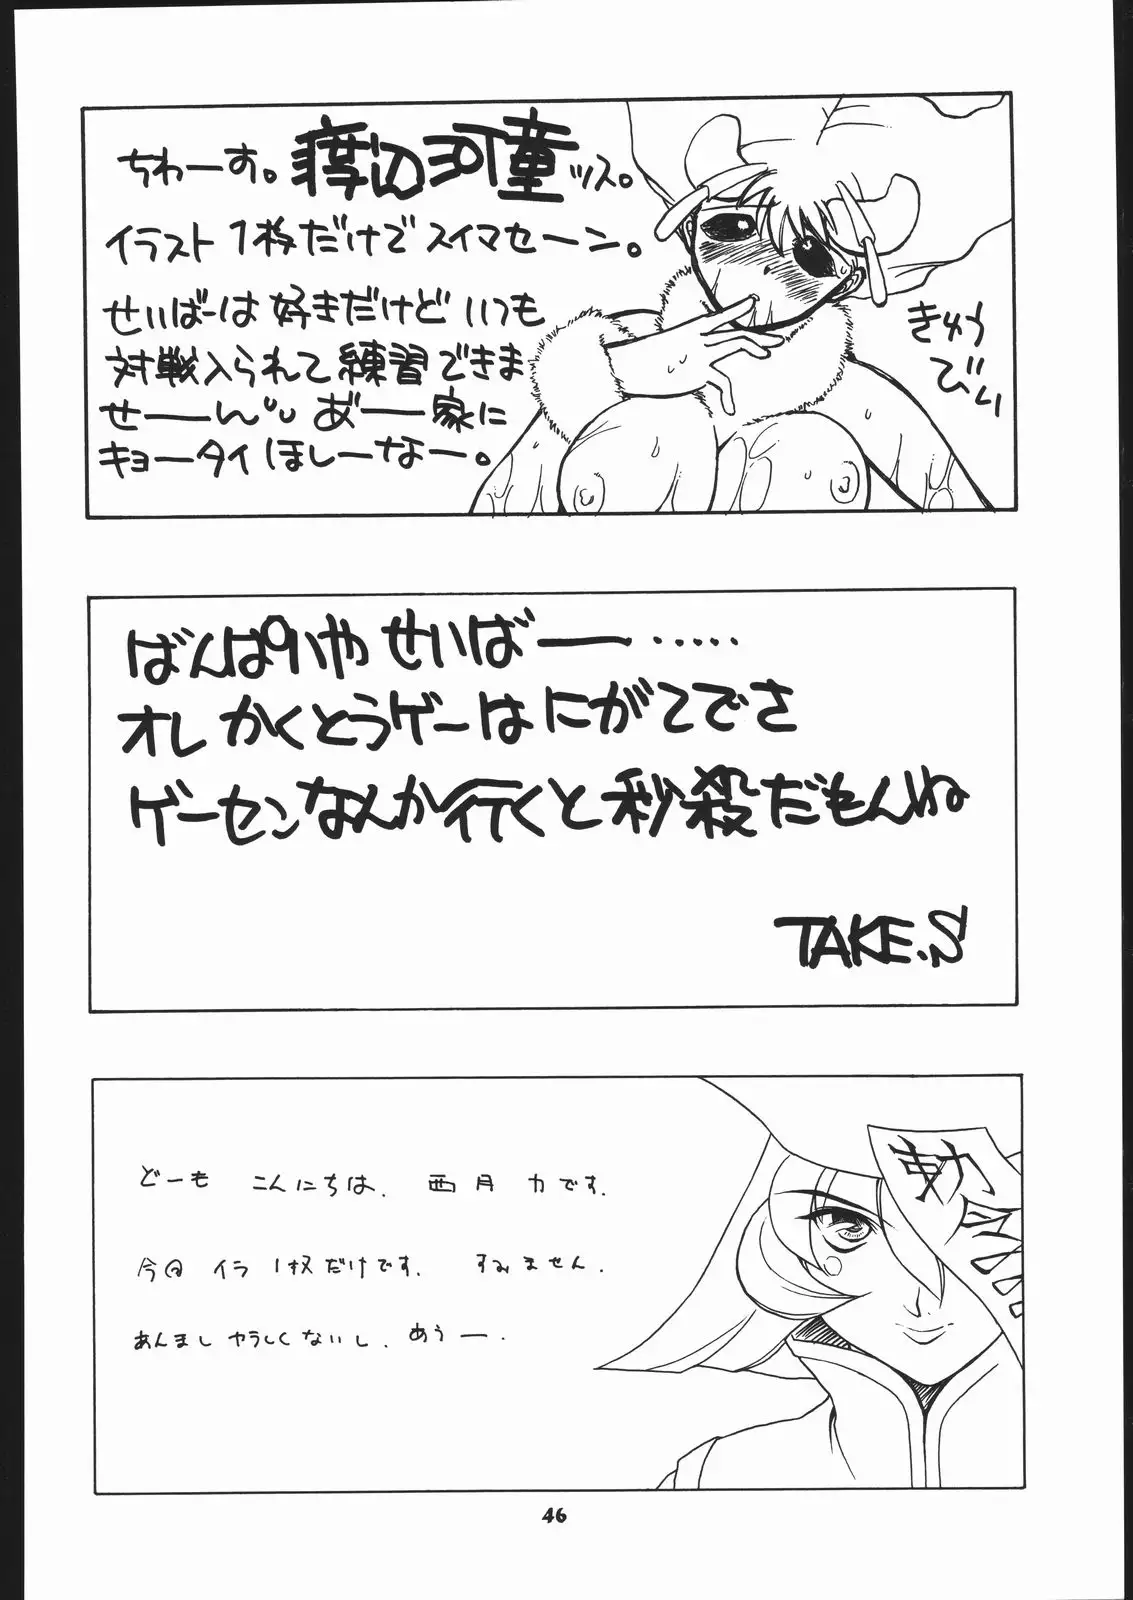 ちわーす。河童ッス。
イラスト1枚だけでスイマセーン。
せいばーは好きだけどいつも
対戦入られて練習できま
せーーん。あ゛ー家に
キョータイほしーなー。
きゅう
びぃ
ばんぱいや せいばー‥‥‥
オレかくとうゲーはにがてでさ
ゲーセンなんか行くと秒殺だもんね
TAKE.S
どーも こんにちは、西月 力です。
今回 イラ 1枚だけです。すみません。
あんまし やらしくないし、あうー。
勅
46